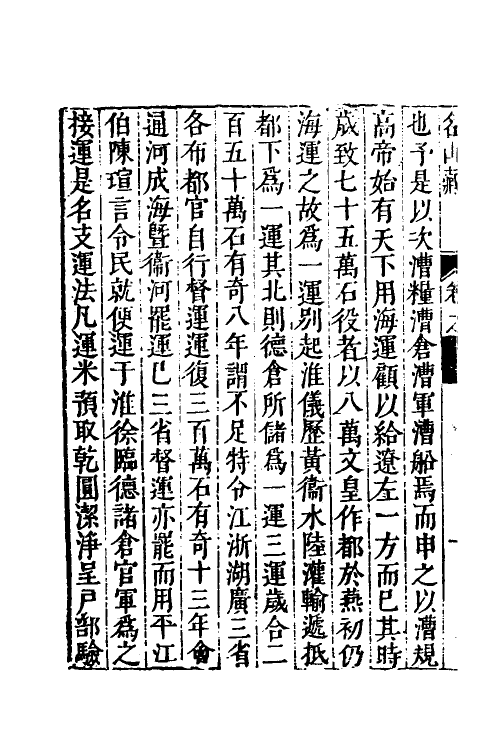 名山藏　卷之
也予是以次漕糧漕倉漕軍漕船焉而申之以漕規
高帝始有天下用海運顧以給遼左一方而已其時
歲致七十五萬石役者以八萬文皇作都於燕初仍
海運之故爲一運别起淮儀歷黃衞水陸灌輸遞抵
都下爲一運其北則德倉所儲爲一運三運歲合二
百五十萬石有奇八年謂不足特分江浙湖廣三省
各布都官自行督運運復三百萬石有奇十三年會
通河成海暨衞河罷運已三省督運亦罷而用平江
伯陳瑄言令民就便運于淮徐臨德諸倉官軍爲之
接運是名支運法凡運米預取乾圓潔淨呈戸部驗